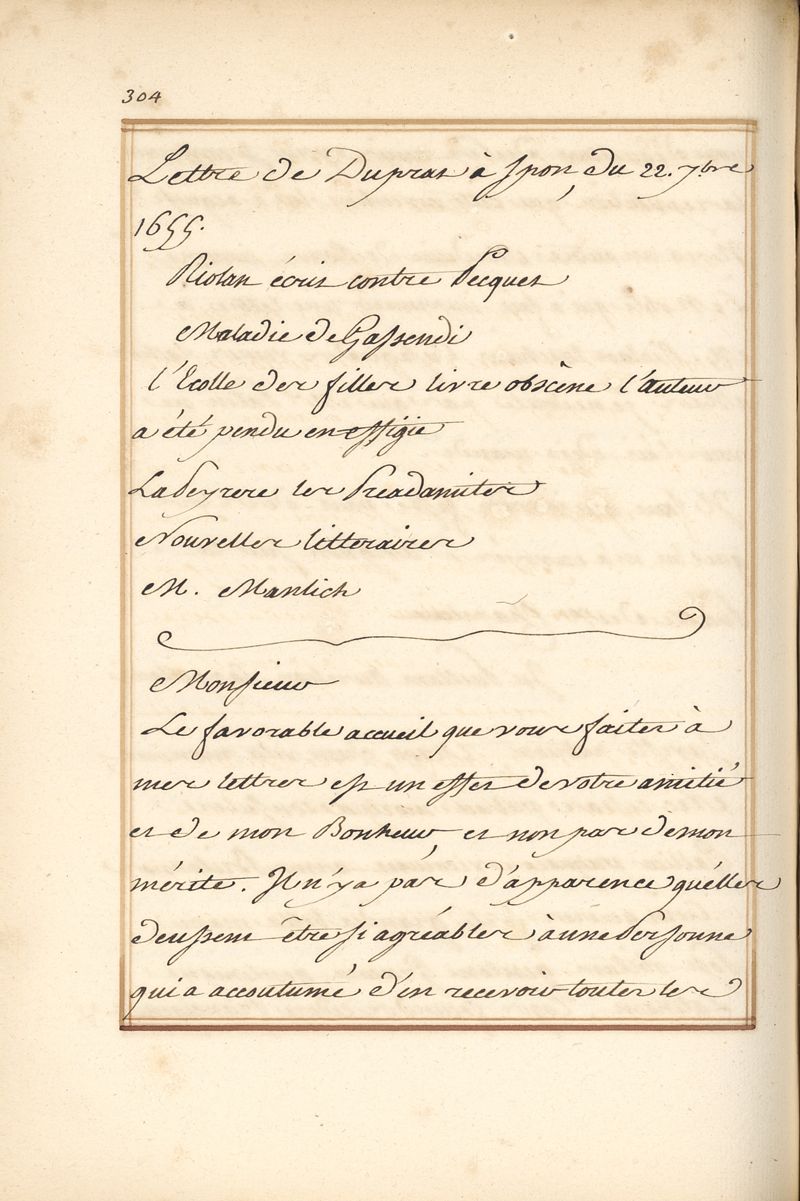 304
Lettre de Duprat à Spon, du 22. 7bre
1655.
Riolan écrit contre Pecquet
Maladie de Gassendi
l'Ecolle des filles livre obscène l'auteur
a été pendu en effigie
La Peyrere les Preadamites
Nouvelles litteraires
M. Manlich
Monsieur
Le favorable accueil que vous faites à
mes lettres est un effet de votre amitié
et de mon Bonheur, et non pas de mon
mérite. Il n'y a pas d'apparence qu'elles
deussent être si agréables à une Personne
qui a accoutumé d'en recevoir toutes les